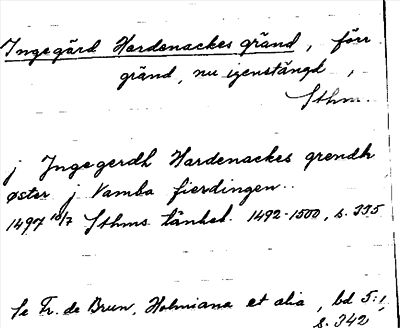 Ingegärd Hardenackes gränd, förr
gränd, nu igenstängd,
Sthm.
j Jngegerdh Hardenackes grendh
øster j Vamba fierdingen.
1497 10/7 Sthms tänkeb. 1492-1500, s. 335
Se Fr. de Brun, Holmiana et alia, bd 5:,
s. 342